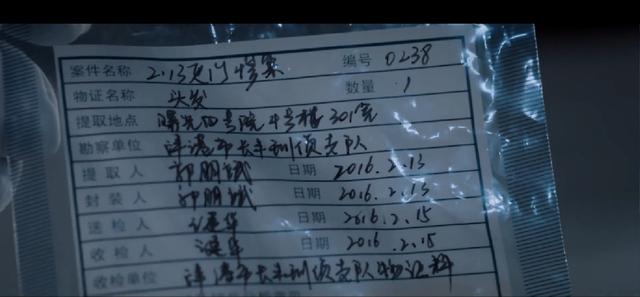 案件名称 2.13灭门惨案 编号 0238
物证名称 头发 数量 1
提取地点 曙光四号院4号楼301室
勘察单位 津港市长丰刑侦支队
提取人 郭朋斌 日期 2016.2.13
封装人 郭朋斌 日期 2016.2.13
送检人 日期 2016.2.15
收检人 日期 2016.2.15
收检单位 津港市长丰刑侦支队物证科